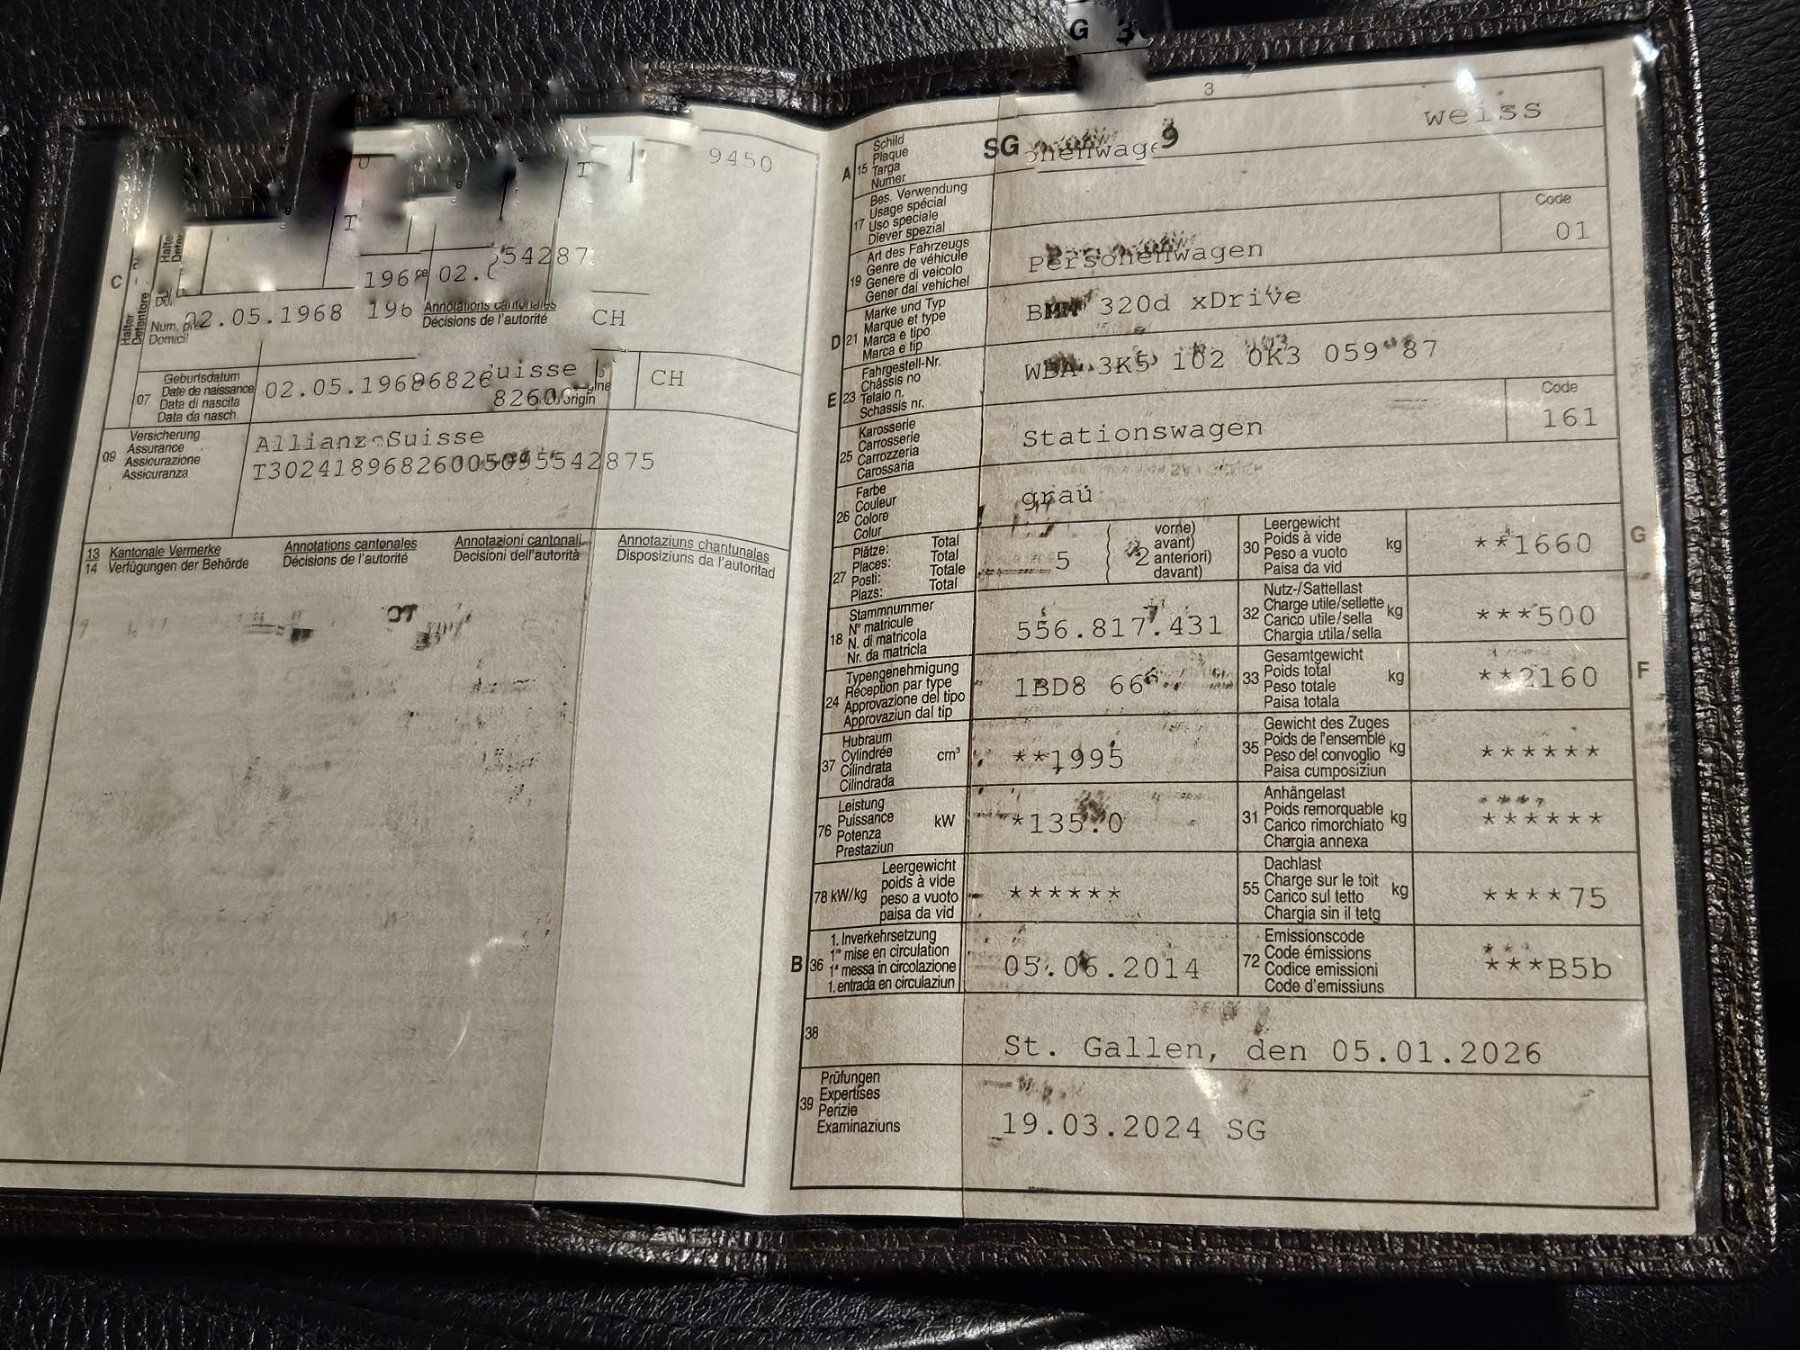 G 3
3
9450
weiss
A 15 Schild
Plaque
Targa
Numer
SG 9
C
Halter
Detentore
1968
02.
542875
02.05.1968 196
Annotations cantonales
Décisions de l'autorité
CH
Domicil
17 Bes. Verwendung
Usage spécial
Uso speciale
Diever spezial
19 Art des Fahrzeugs
Genre de véhicule
Genere di veicolo
Gener dal vehichel
Personenwagen
Code
01
D 21 Marke und Typ
Marque et type
Marca e tipo
Marca e tip
BMW 320d xDrive
E 23 Fahrgestell-Nr.
Châssis no
Telaio n.
Schassis nr.
WBA 3K5 102 0K3 059 87
07 Geburtsdatum
Date de naissance
Data di nascita
Data da nasch.
CH
09 Versicherung
Assurance
Assicurazione
Assicuranza
Allianz Suisse
25 Karosserie
Carrosserie
Carrozzeria
Carossaria
Stationswagen
Code
161
26 Farbe
Couleur
Colore
Colur
grau
13 Kantonale Vermerke
14 Verfügungen der Behörde
Annotations cantonales
Décisions de l'autorité
Annotazioni cantonali
Decisioni dell'autorità
Annotaziuns chantunalas
Disposiziuns da l'autoritad
27 Plätze: Total
Places: Total
Posti: Totale
Plazs: Total
5 ( 2 vorne)
avant)
anteriori)
davant)
30 Leergewicht
Poids à vide
Peso a vuoto
Paisa da vid
kg
**1660
G
18 Stammnummer
N° matricule
N. di matricola
Nr. da matricla
556.817.431
32 Nutz-/Sattellast
Charge utile/sellette
Carico utile/sella
Chargia utila/sella
kg
***500
24 Typengenehmigung
Réception par type
Approvazione del tipo
Approvaziun dal tip
1BD8 66
33 Gesamtgewicht
Poids total
Peso totale
Paisa totala
kg
**2160
F
37 Hubraum
Cylindrée
Cilindrata
Cilindrada
cm³
**1995
35 Gewicht des Zuges
Poids de l'ensemble
Peso del convoglio
Paisa cumposiziun
kg
******
76 Leistung
Puissance
Potenza
Prestaziun
kW
*135.0
31 Anhängelast
Poids remorquable
Carico rimorchiato
Chargia annexa
kg
******
78 kW/kg Leergewicht
poids à vide
peso a vuoto
paisa da vid
******
55 Dachlast
Charge sur le toit
Carico sul tetto
Chargia sin il tetg
kg
****75
B 36 1. Inverkehrsetzung
1re mise en circulation
1a messa in circolazione
1. entrada en circulaziun
05.06.2014
72 Emissionscode
Code émissions
Codice emissioni
Code d'emissiuns
***B5b
38
St. Gallen, den 05.01.2026
39 Prüfungen
Expertises
Perizie
Examinaziuns
19.03.2024 SG